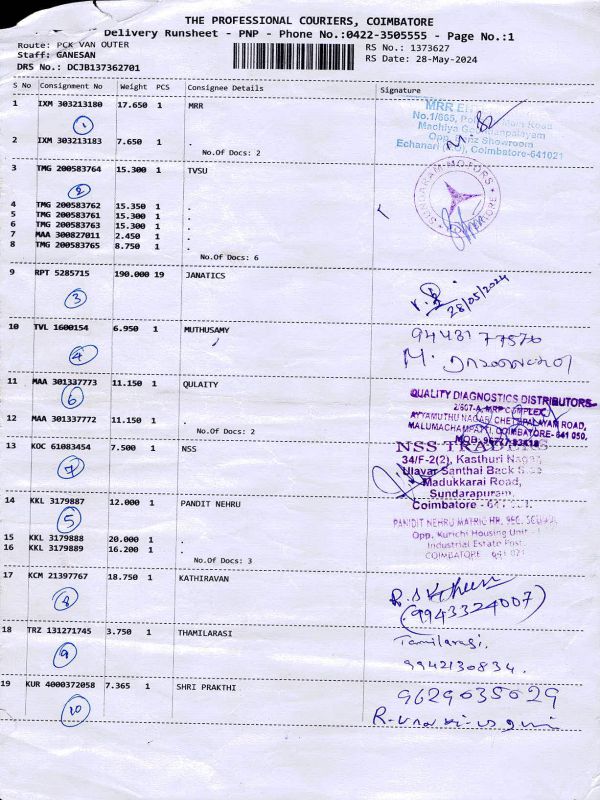 THE PROFESSIONAL COURIERS, COIMBATORE
Delivery Runsheet - PNP - Phone No.:0422-3505555 - Page No.:1
Route: PCK VAN OUTER
RS No.: 1373627
Staff: GANESAN
RS Date: 28-May-2024
DRS No.: DCJB137362701
S No Consignment No Weight PCS Consignee Details Signature
1 IXM 303213180 17.650 1 MRR
1
MRR
No.1/665, Road
Machiya
Opp. Benz Showroom
Echanari Coimbatore-641021
2 IXM 303213183 7.650 1 .
No.Of Docs: 2
3 TMG 200583764 15.300 1 TVSU
2
SUNDARAM MOTORS
4 TMG 200583762 15.350 1 .
5 TMG 200583761 15.300 1 .
6 TMG 200583763 15.300 1 .
7 MAA 300827011 2.450 1 .
8 TMG 200583765 8.750 1 .
No.Of Docs: 6
9 RPT 5285715 190.000 19 JANATICS
3
28/05/2024
10 TVL 1600154 6.950 1 MUTHUSAMY
4
9443177570
M.
11 MAA 301337773 11.150 1 QULAITY
6
QUALITY DIAGNOSTICS DISTRIBUTORS
2/607-A, MRP COMPLEX
AYYAMUTHU NAGAR, CHETTIPALAYAM ROAD,
MALUMACHAMPATTI, COIMBATORE- 641 050.
12 MAA 301337772 11.150 1 .
No.Of Docs: 2
13 KOC 61083454 7.500 1 NSS
7
NSS TRADERS
34/F-2(2), Kasthuri Nagar,
Ulavar Santhai Back Side
Madukkarai Road,
Sundarapuram,
Coimbatore -
14 KKL 3179887 12.000 1 PANDIT NEHRU
5
PANDIT NEHRU MATRIC HR. SEC. SCHOOL
Opp. Kurichi Housing Unit
Industrial Estate Post.
COIMBATORE 641 021
15 KKL 3179888 20.000 1 .
16 KKL 3179889 16.200 1 .
No.Of Docs: 3
17 KCM 21397767 18.750 1 KATHIRAVAN
8
(9943324007)
18 TRZ 131271745 3.750 1 THAMILARASI
9
Tamilarasi,
9942130834.
19 KUR 4000372058 7.365 1 SHRI PRAKTHI
10
9629035029